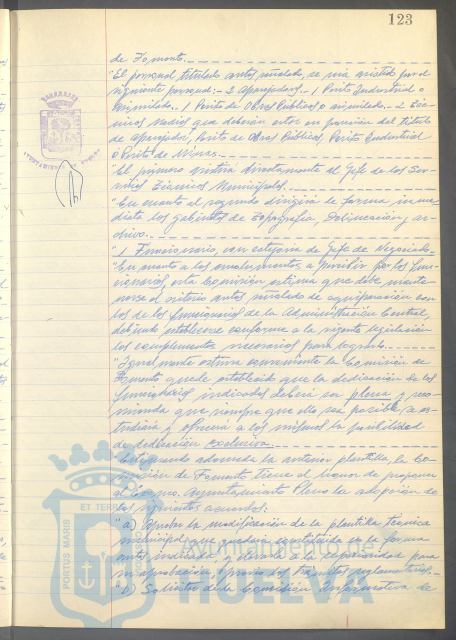 123
de Fomento.
"El personal titulado antes señalado, se verá asistido por el
siguiente personal: - 2 Aparejadores. 1 Perito Industrial o
asimilado. 1 Perito de Obras Públicas o asimilado. - 2 Téc-
nicos Medios que deberán estar en posesión del título
de Aparejador, Perito de Obras Públicas, Perito Industrial
o Perito de Minas.
"El primero asistirá directamente al Jefe de los Ser-
vicios Técnicos Municipales.
"En cuanto al segundo dirigirá de forma inme-
diata los gabinetes de Topografía, Delineación y ar-
chivo.
"1 Funcionario, con categoría de Jefe de Negociado.
"En cuanto a los emolumentos a percibir por los fun-
cionarios, esta Comisión estima que debe mante-
nerse el criterio antes señalado de equiparación con
los de los funcionarios de la Administración Central,
debiendo establecerse conforme a la vigente legislación
los complementos necesarios para lograrlo.
"Igualmente estima conveniente la Comisión de
Fomento quede establecido que la dedicación de los
funcionarios indicados deberá ser plena y reco-
mienda que siempre que ello sea posible, se es-
tudiará y ofrecerá a los mismos la posibilidad
de dedicación exclusiva.
adecuada la anterior plantilla, la Co-
misión de Fomento tiene el honor de proponer
al Excmo. Ayuntamiento Pleno la adopción de
los siguientes acuerdos:
"a) Aprobar la modificación de la plantilla técnica
municipal que quedará constituida en la forma
antes indicada, y elevarla a la superioridad para
su aprobación, previos los trámites reglamentarios.
"b) Solicitar de la Comisión Informativa de
ET TERRAE
PORTUS MARIS
Ayuntamiento de
HUELVA